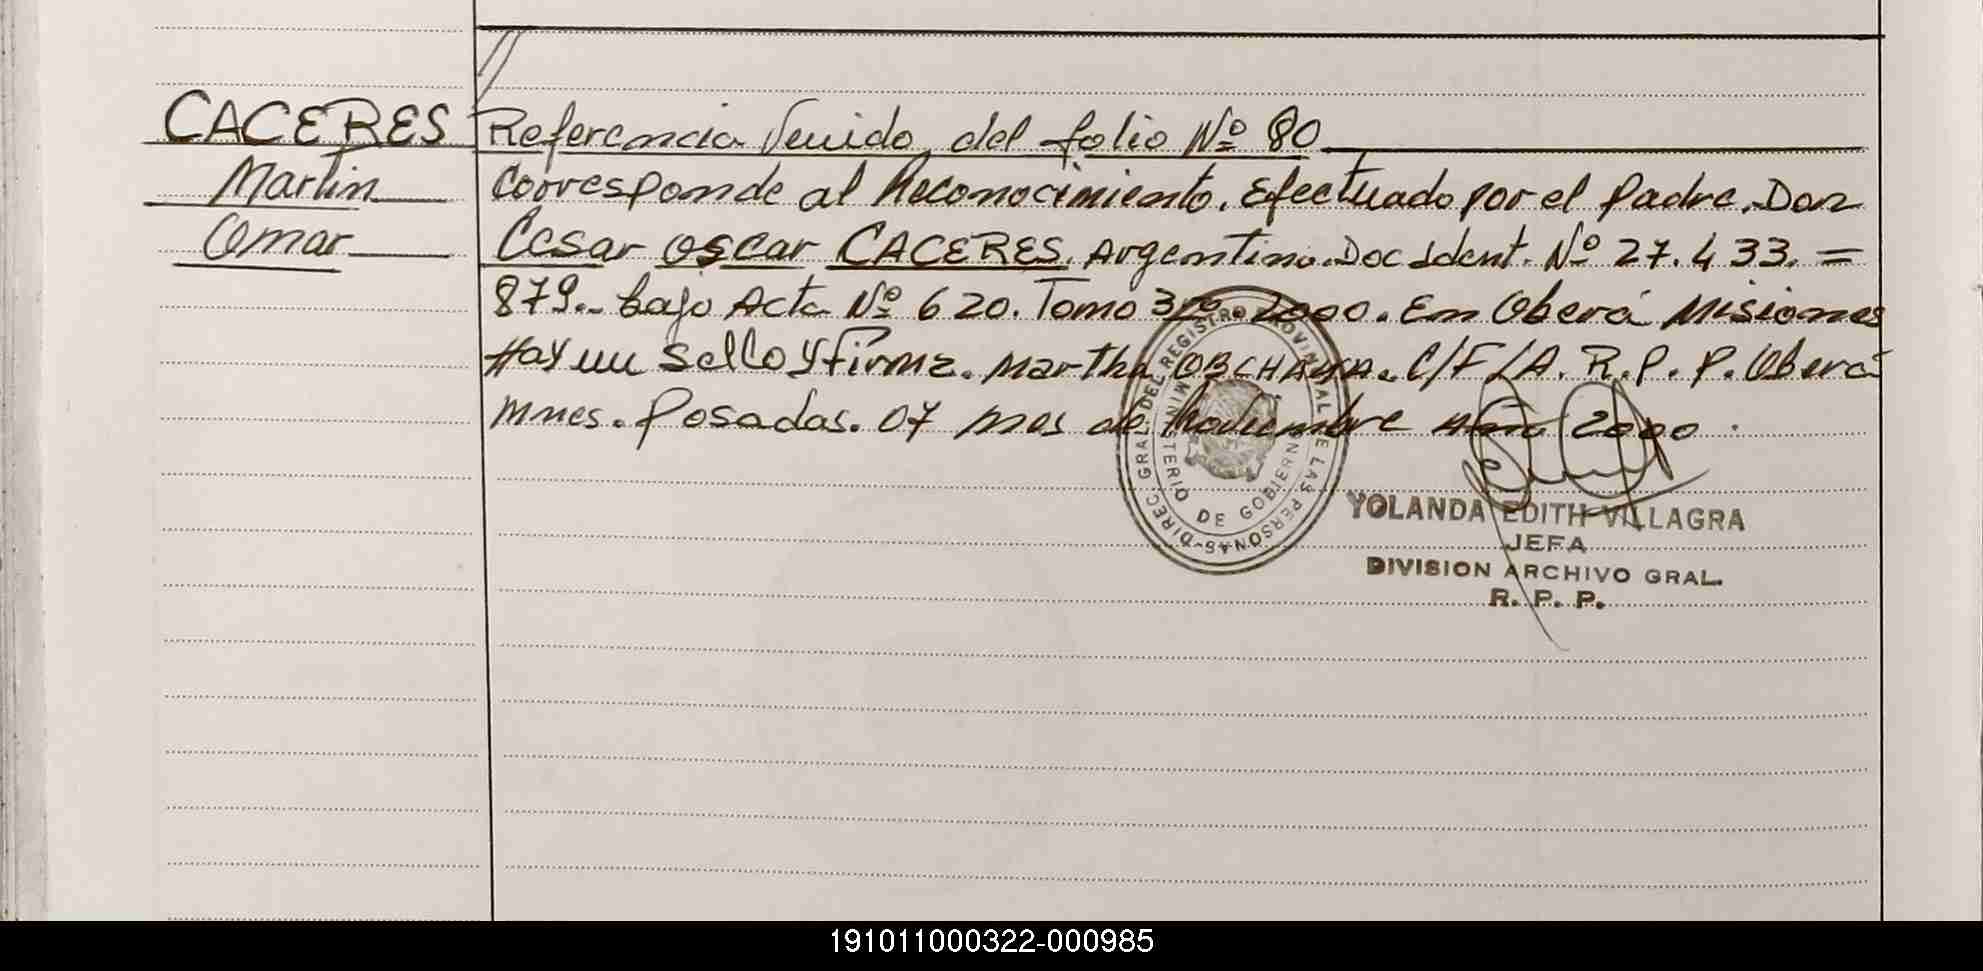 CACERES
Martin
Omar
Referencia Venido del folio Nº 80
Corresponde al Reconocimiento. Efectuado por el Padre. Don
Cesar Oscar CACERES. Argentino. Doc Ident. Nº 27.433.=
879.- bajo Acta Nº 620. Tomo 3ro. 2000. En Oberá Misiones
Hay un Sello y firma. Martha C/F/A. R.P.P. Oberá
Mnes. Posadas. 07 mes de Noviembre Año 2000.
DIREC. GRAL. DEL REGISTRO PROVINCIAL DE LAS PERSONAS
MINISTERIO DE GOBIERNO
YOLANDA EDITH VILLAGRA
JEFA
DIVISION ARCHIVO GRAL.
R. P. P.
191011000322-000985